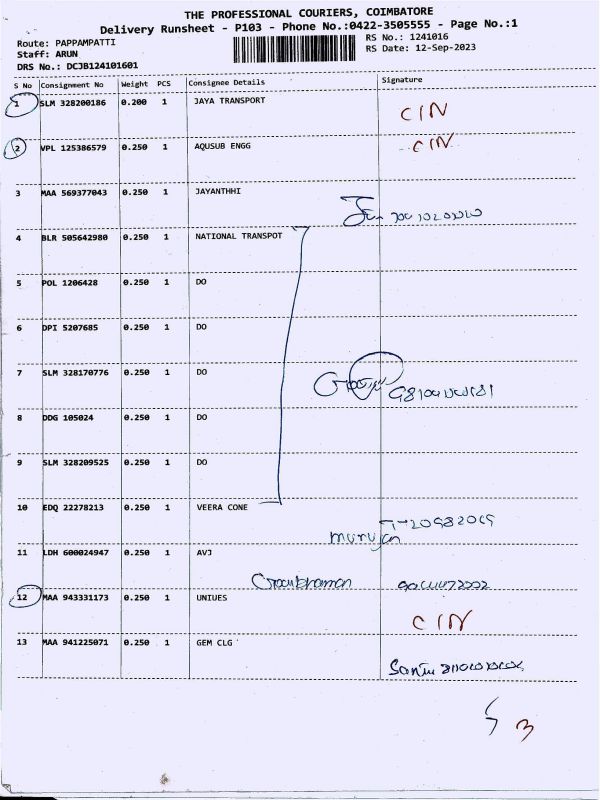 THE PROFESSIONAL COURIERS, COIMBATORE
Delivery Runsheet - P103 - Phone No.:0422-3505555 - Page No.:1
Route: PAPPAMPATTI
RS No.: 1241016
Staff: ARUN
RS Date: 12-Sep-2023
DRS No.: DCJB124101601
S No Consignment No Weight PCS Consignee Details Signature
1 SLM 328200186 0.200 1 JAYA TRANSPORT
CIN
2 VPL 125386579 0.250 1 AQUSUB ENGG CIN
3 MAA 569377043 0.250 1 JAYANTHHI
4 BLR 505642980 0.250 1 NATIONAL TRANSPOT
5 POL 1206428 0.250 1 DO
6 DPI 5207685 0.250 1 DO
7 SLM 328170776 0.250 1 DO
8 DDG 105024 0.250 1 DO
9 SLM 328209525 0.250 1 DO
10 EDQ 22278213 0.250 1 VEERA CONE
murujan
11 LDH 600024947 0.250 1 AVJ
12 MAA 943331173 0.250 1 UNIUES
CIN
13 MAA 941225071 0.250 1 GEM CLG
3